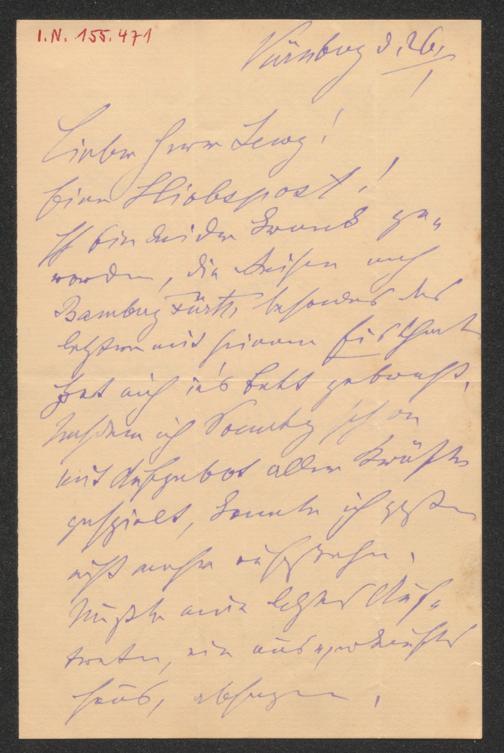 I.N. 155.471
Nürnberg d. 26/1
Lieber Herr Lewy!
Eine Hiobspost!
Ich bin leider krank ge-
worden, die Reisen nach
Bamberg Fürth, besonders das
letztere mit seinem Eistheater
hat mich in's Bett gebracht.
Nachdem ich Sonntag schon
mit Aufgebot aller Kräfte
gespielt, konnte ich gestern
nicht mehr aufstehn,
mußte mein letztes Auf-
treten, ein ausverkauftes
Haus, absagen,